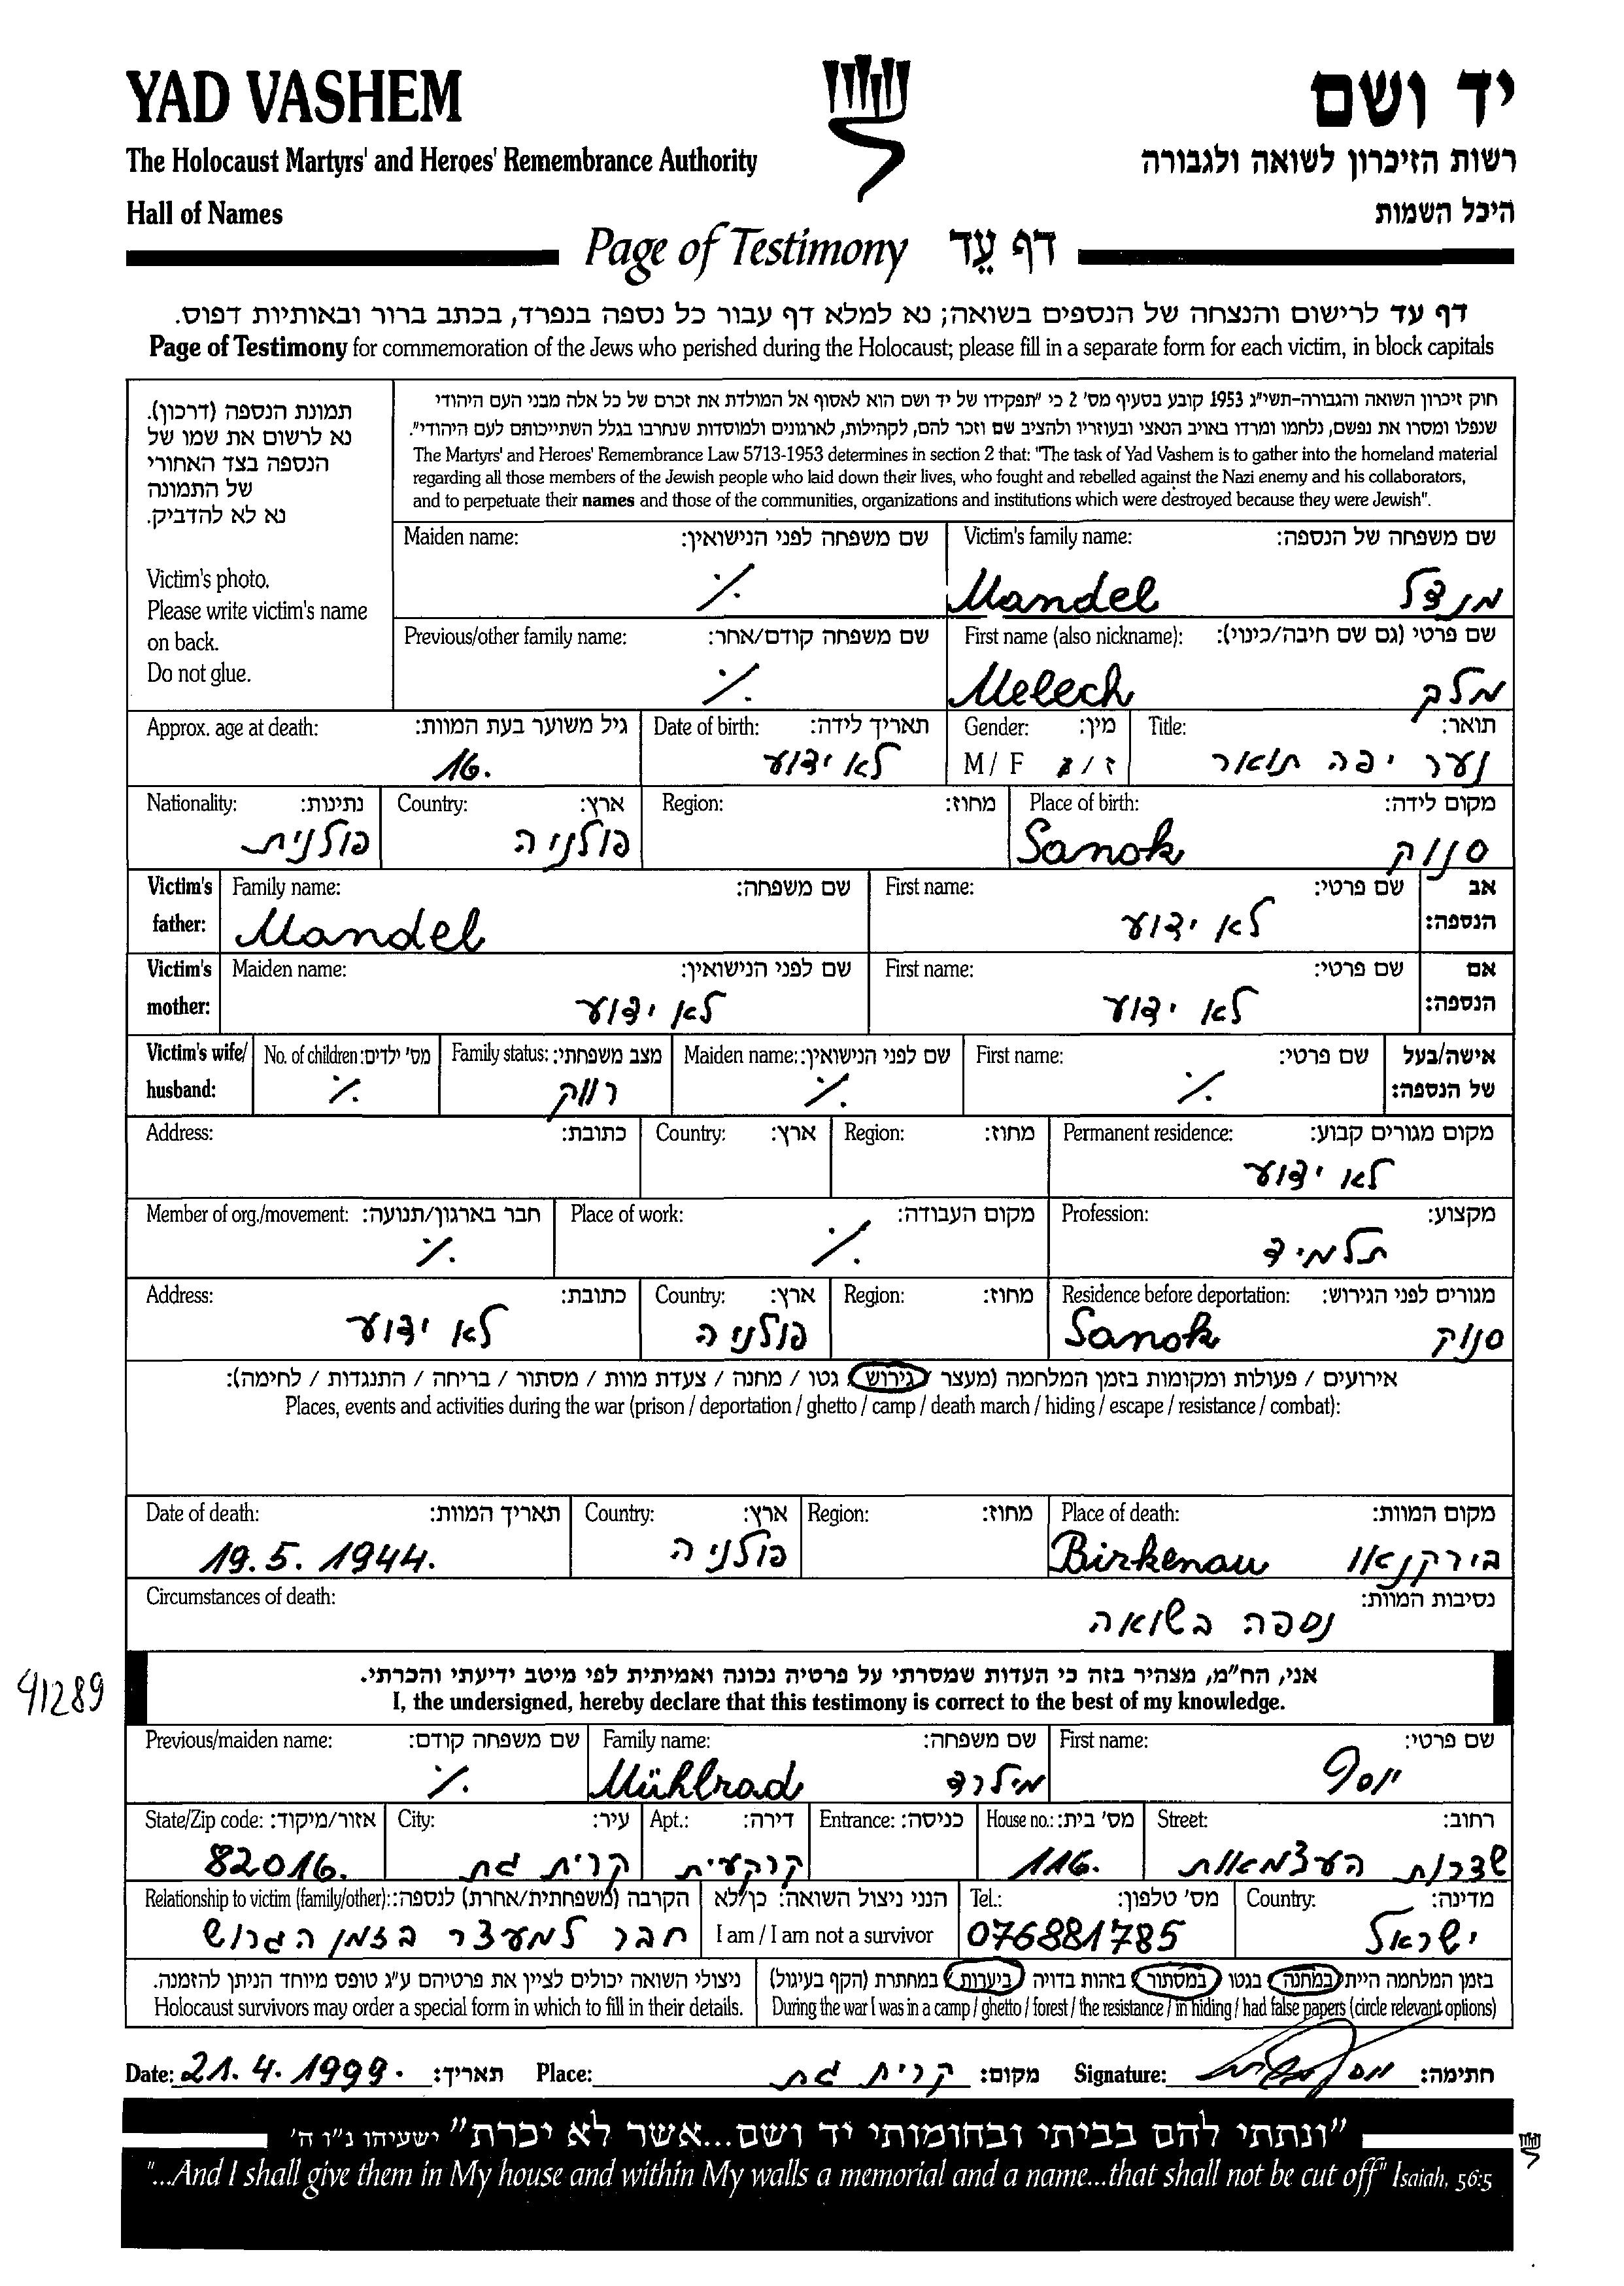 YAD VASHEM
יד ושם
The Holocaust Martyrs' and Heroes' Remembrance Authority
רשות הזיכרון לשואה ולגבורה
Hall of Names
היכל השמות
Page of Testimony דף עֵד
דף עד לרישום והנצחה של הנספים בשואה; נא למלא דף עבור כל נספה בנפרד, בכתב ברור ובאותיות דפוס.
Page of Testimony for commemoration of the Jews who perished during the Holocaust; please fill in a separate form for each victim, in block capitals
תמונת הנספה (דרכון).
נא לרשום את שמו של
הנספה בצד האחורי
של התמונה
נא לא להדביק.
Victim's photo.
Please write victim's name
on back.
Do not glue.
חוק זיכרון השואה והגבורה-תשי"ג 1953 קובע בסעיף מס' 2 כי "תפקידו של יד ושם הוא לאסוף אל המולדת את זכרם של כל אלה מבני העם היהודי
שנפלו ומסרו את נפשם, נלחמו ומרדו באויב הנאצי ובעוזריו ולהציב שם וזכר להם, לקהילות, לארגונים ולמוסדות שנחרבו בגלל השתייכותם לעם היהודי".
The Martyrs' and Heroes' Remembrance Law 5713-1953 determines in section 2 that: "The task of Yad Vashem is to gather into the homeland material
regarding all those members of the Jewish people who laid down their lives, who fought and rebelled against the Nazi enemy and his collaborators,
and to perpetuate their names and those of the communities, organizations and institutions which were destroyed because they were Jewish".
Maiden name: שם משפחה לפני הנישואין: Victim's family name: שם משפחה של הנספה:
٪ Mandel מנדל
Previous/other family name: שם משפחה קודם/אחר: First name (also nickname): שם פרטי (גם שם חיבה/כינוי):
٪ Melech מלך
Approx. age at death: גיל משוער בעת המוות: Date of birth: תאריך לידה: Gender: מין: Title: תואר:
16. לא ידוע M / F ז / נ נער יפה תואר
Nationality: נתינות: Country: ארץ: Region: מחוז: Place of birth: מקום לידה:
פולנית פולניה Sanok סנוק
Victim's father: Family name: שם משפחה: First name: שם פרטי: אב הנספה:
Mandel לא ידוע
Victim's mother: Maiden name: שם לפני הנישואין: First name: שם פרטי: אם הנספה:
לא ידוע לא ידוע
Victim's wife/ husband: No. of children: מס' ילדים: Family status: מצב משפחתי: Maiden name: שם לפני הנישואין: First name: שם פרטי: אישה/בעל של הנספה:
٪ רווק ٪ ٪
Address: כתובת: Country: ארץ: Region: מחוז: Permanent residence: מקום מגורים קבוע:
לא ידוע
Member of org./movement: חבר בארגון/תנועה: Place of work: מקום העבודה: Profession: מקצוע:
٪ ٪ תלמיד
Address: כתובת: Country: ארץ: Region: מחוז: Residence before deportation: מגורים לפני הגירוש:
לא ידוע פולניה Sanok סנוק
אירועים / פעולות ומקומות בזמן המלחמה (מעצר / גירוש / גטו / מחנה / צעדת מוות / מסתור / בריחה / התנגדות / לחימה):
Places, events and activities during the war (prison / deportation / ghetto / camp / death march / hiding / escape / resistance / combat):
Date of death: תאריך המוות: Country: ארץ: Region: מחוז: Place of death: מקום המוות:
19.5.1944. פולניה Birkenau בירקנאו
Circumstances of death: נסיבות המוות:
נספה בשואה
אני, הח"מ, מצהיר בזה כי העדות שמסרתי על פרטיה נכונה ואמיתית לפי מיטב ידיעתי והכרתי.
41289
I, the undersigned, hereby declare that this testimony is correct to the best of my knowledge.
Previous/maiden name: שם משפחה קודם: Family name: שם משפחה: First name: שם פרטי:
٪ Mühlrad מילרד יוסף
State/Zip code: אזור/מיקוד: City: עיר: Apt.: דירה: Entrance: כניסה: House no.: מס' בית: Street: רחוב:
82016. קרית גת קרקעית 116. שדרות העצמאות
Relationship to victim (family/other): הקרבה (משפחתית/אחרת) לנספה: הנני ניצול השואה: כן/לא Tel.: מס' טלפון: Country: מדינה:
חבר למעצר בזמן הגרוש I am / I am not a survivor 076881785 ישראל
ניצולי השואה יכולים לציין את פרטיהם ע"ג טופס מיוחד הניתן להזמנה. בזמן המלחמה הייתי במחנה / בגטו / במסתור / בזהות בדויה / ביערות / במחתרת (הקף בעיגול)
Holocaust survivors may order a special form in which to fill in their details. During the war I was in a camp / ghetto / forest / the resistance / in hiding / had false papers (circle relevant options)
Date: 21.4.1999. תאריך: Place: קרית גת מקום: Signature: חתימה:
"ונתתי להם בביתי ובחומותי יד ושם...אשר לא יכרת" ישעיהו נ"ו ה'
"...And I shall give them in My house and within My walls a memorial and a name...that shall not be cut off" Isaiah, 56:5